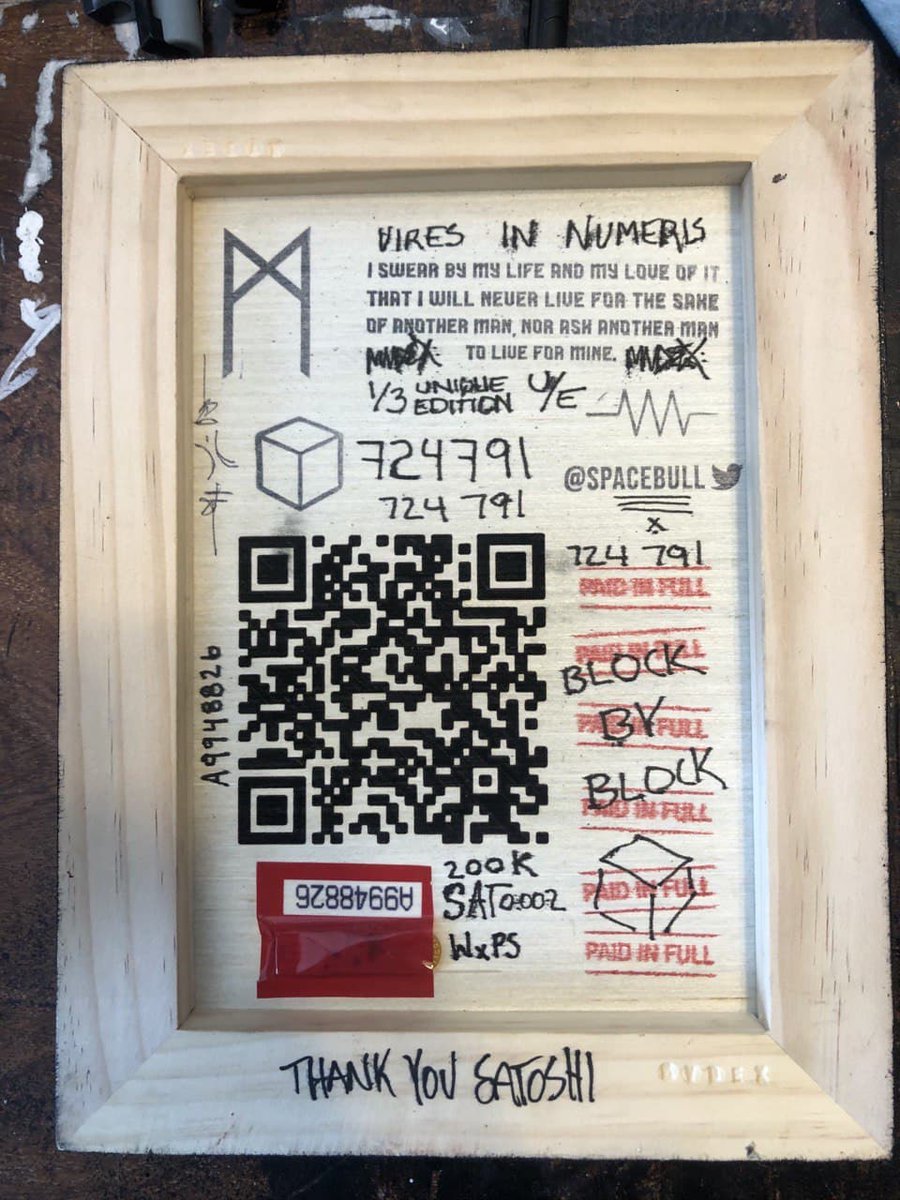 VIRES IN NUMERIS
I SWEAR BY MY LIFE AND MY LOVE OF IT
THAT I WILL NEVER LIVE FOR THE SAKE
OF ANOTHER MAN, NOR ASK ANOTHER MAN
TO LIVE FOR MINE.
1/3 UNIQUE EDITION U/E
724791
724 791
@SPACEBULL
x
724 791
PAID IN FULL
PAID IN FULL
BLOCK
PAID IN FULL
BY
BLOCK
PAID IN FULL
PAID IN FULL
PAID IN FULL
A9948826
A9948826
200K
SAT 0.002
WxPS
THANK YOU SATOSHI